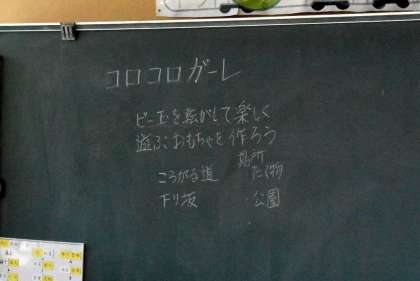 コロコロガーレ
ビー玉を転がして楽しく
遊ぶおもちゃを作ろう
場所
ころがる道
たて物
下り坂
・公園